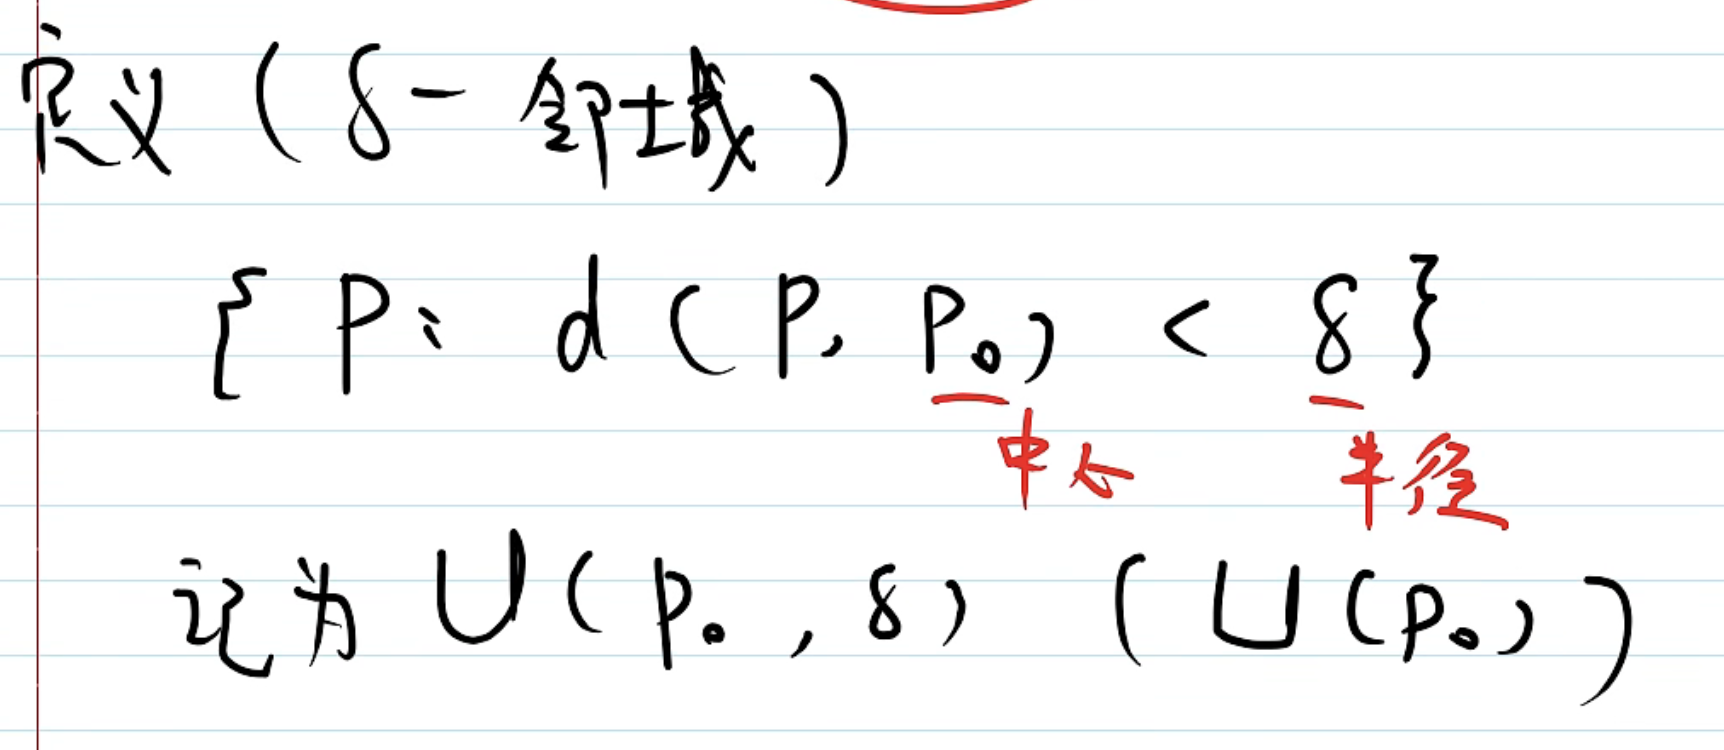 定义（δ-邻域）
{ P: d(P, P₀) < δ }
中心 半径
记为 U(P₀, δ) (U(P₀))